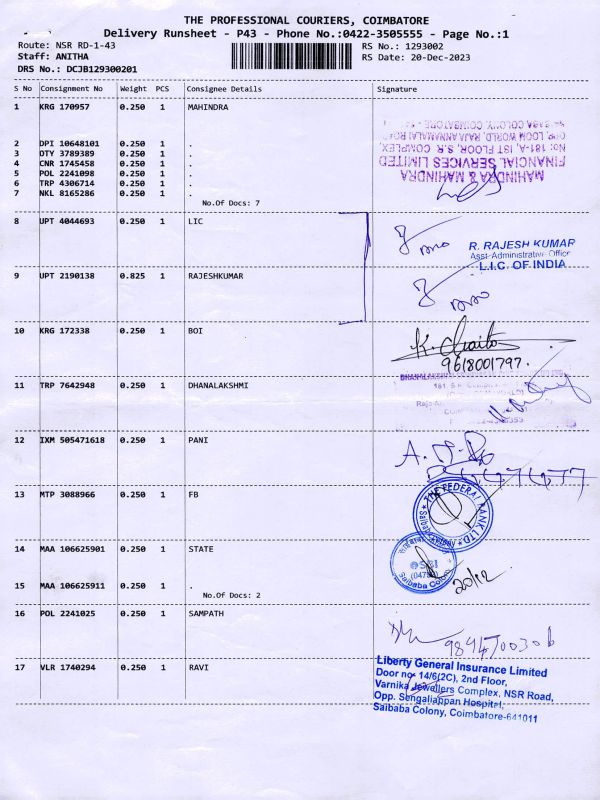 THE PROFESSIONAL COURIERS, COIMBATORE
Delivery Runsheet - P43 - Phone No.:0422-3505555 - Page No.:1
Route: NSR RD-1-43
RS No.: 1293002
Staff: ANITHA
RS Date: 20-Dec-2023
DRS No.: DCJB129300201
S No Consignment No Weight PCS Consignee Details Signature
1 KRG 170957 0.250 1 MAHINDRA
2 DPI 10648101 0.250 1 .
3 DTY 3789389 0.250 1 .
4 CNR 1745458 0.250 1 .
5 POL 2241098 0.250 1 .
6 TRP 4306714 0.250 1 .
7 NKL 8165286 0.250 1 .
No.Of Docs: 7
MAHINDRA & MAHINDRA
FINANCIAL SERVICES LIMITED
No: 181-A, 1ST FLOOR, S.R. COMPLEX,
OPP. LOOM WORLD, RAJA ANNAMALAI ROAD
SAIBABA COLONY, COIMBATORE
8 UPT 4044693 0.250 1 LIC
R. RAJESH KUMAR
Asst-Administrative Officer
L.I.C. OF INDIA
9 UPT 2190138 0.825 1 RAJESHKUMAR
10 KRG 172338 0.250 1 BOI
9618001797.
11 TRP 7642948 0.250 1 DHANALAKSHMI
12 IXM 505471618 0.250 1 PANI
13 MTP 3088966 0.250 1 FB
THE FEDERAL BANK LTD.
Saibaba Colony
14 MAA 106625901 0.250 1 STATE
SBI
Saibaba Colony
20/12
15 MAA 106625911 0.250 1 .
No.Of Docs: 2
16 POL 2241025 0.250 1 SAMPATH
17 VLR 1740294 0.250 1 RAVI
Liberty General Insurance Limited
Door no: 14/6(2C), 2nd Floor,
Varnika Jewellers Complex, NSR Road,
Opp. Sengaliappan Hospital,
Saibaba Colony, Coimbatore-641011